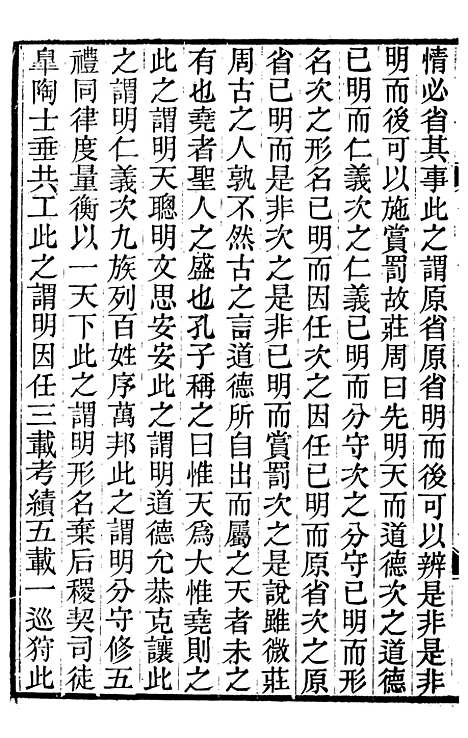 情必省其事此之謂原省原省明而後可以辨是非是非
明而後可以施賞罰故莊周曰先明天而道德次之道德
已明而仁義次之仁義已明而分守次之分守已明而形
名次之形名已明而因任次之因任已明而原省次之原
省已明而是非次之是非已明而賞罰次之是說雖微莊
周古之人孰不然古之言道德所自出而屬之天者未之
有也堯者聖人之盛也孔子稱之曰惟天爲大惟堯則之
此之謂明天聰明文思安安此之謂明道德允恭克讓此
之謂明仁義次九族列百姓序萬邦此之謂明分守修五
禮同律度量衡以一天下此之謂明形名棄后稷契司徒
皐陶士垂共工此之謂明因任三載考績五載一巡狩此